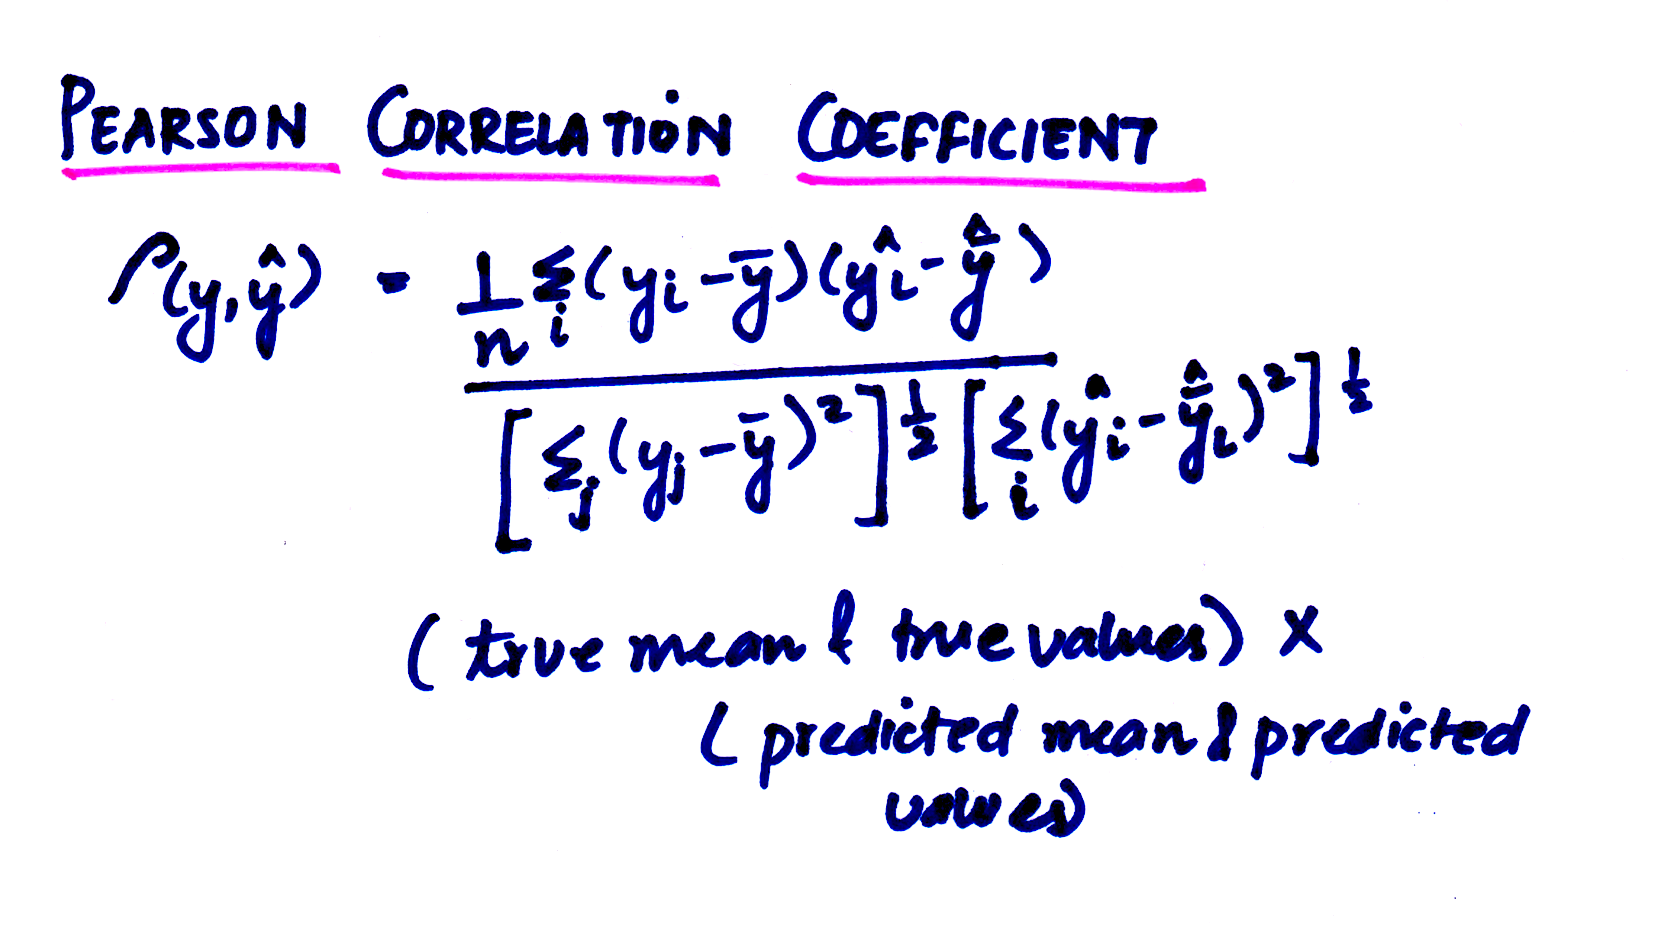 PEARSON CORRELATION COEFFICIENT
ρ(y, ŷ) = \frac{\frac{1}{n} \sum_i (y_i - \bar{y})(\hat{y}_i - \hat{\bar{y}})}{[\sum_j (y_j - \bar{y})^2]^{\frac{1}{2}} [\sum_i (\hat{y}_i - \hat{\bar{y}}_i)^2]^{\frac{1}{2}}}
(true mean & true values) ×
(predicted mean & predicted
values)